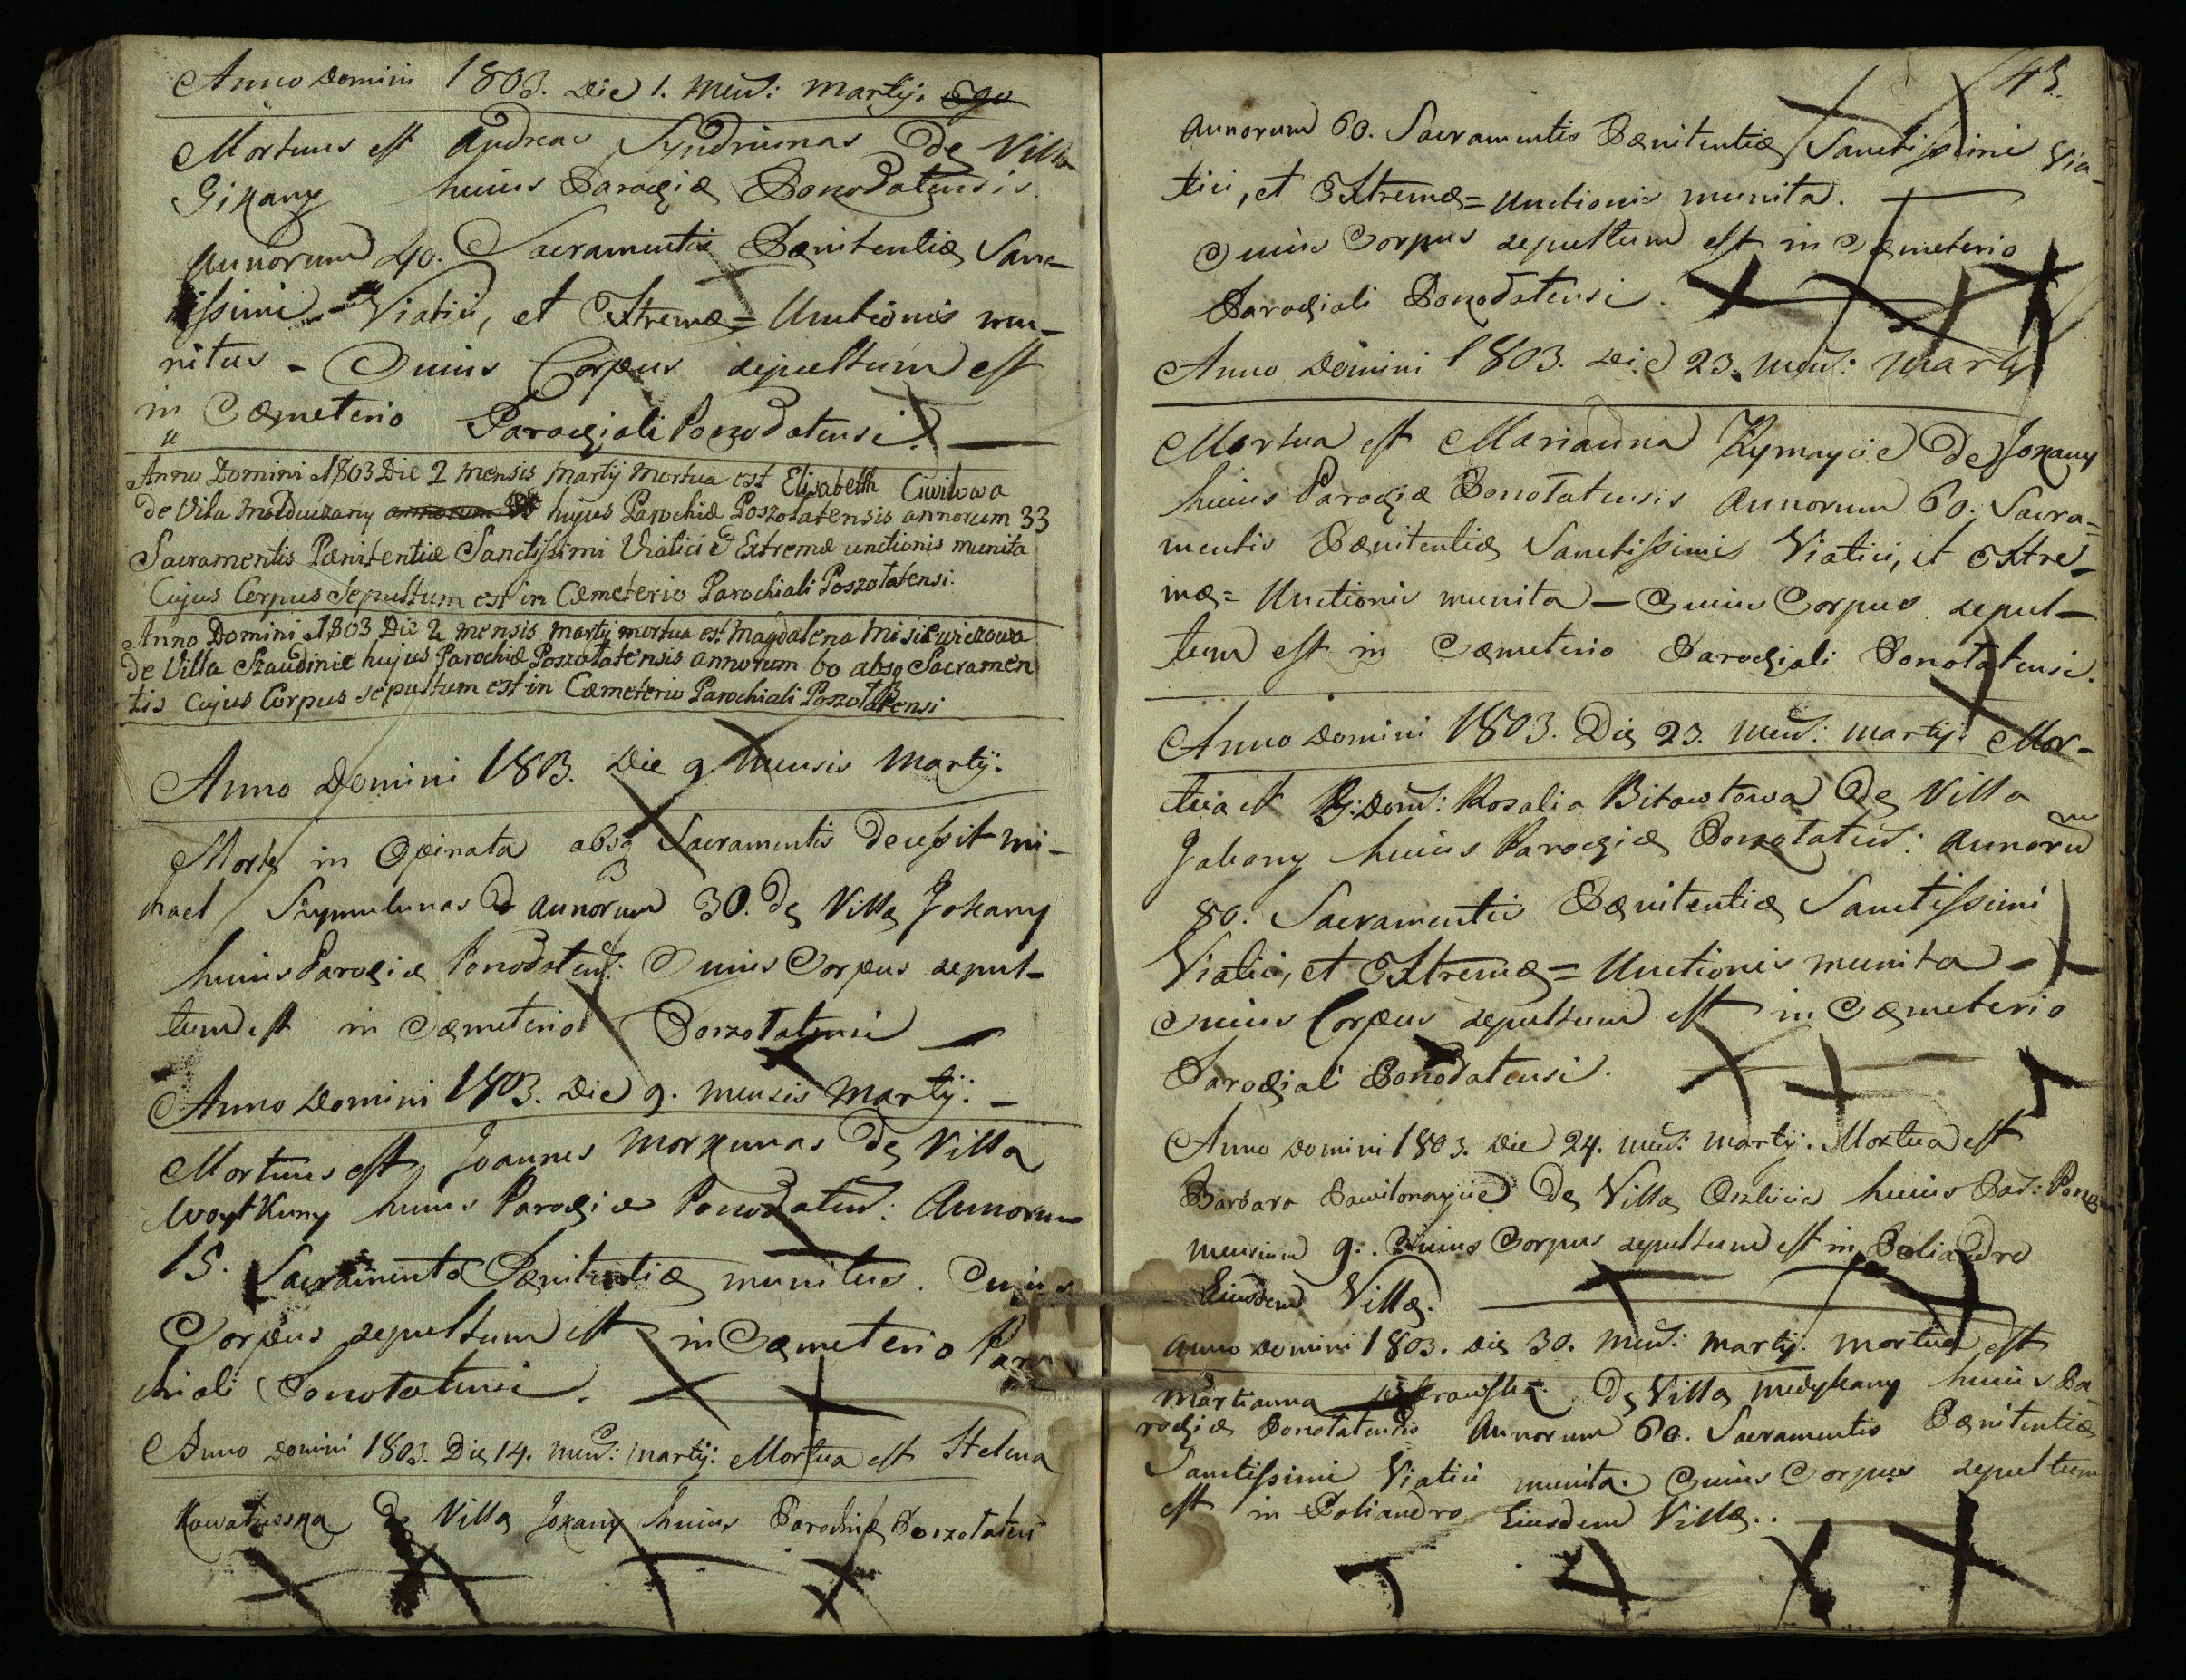 Anno Domini 1803. Die 1. Men̄: Martij. Ego
Mortuus est Andreas Syndriunas De Villa
Gikany huius Parochiæ Poszotatensis.
Annorum 40. Sacramentis Pænitentiæ Sanc-
tissimi Viatici, et Extremæ = Unctionis mu-
nitus - Cuius Corpus sepultum est
in Cæmeterio Parochiali Poszotatensi.
Anno Domini 1803 Die 2 mensis Martij Mortua est Elisabeth Ciwilowa
de Vila Molduczany annorum hujus Parochiæ Poszotatensis annorum 33
Sacramentis Pænitentiæ Sanctissimi Viatici et Extremæ unctionis munita
Cujus Corpus Sepultum est in Cæmeterio Parochiali Poszotatensi.
Anno Domini 1803 Die 2 mensis Martij mortua est Magdalena Misiewiczowa
de Villa Szaudinie hujus Parochiæ Poszotatensis annorum 60 absq Sacramen
tis Cujus Corpus sepultum est in Cæmeterio Parochiali Poszotatensi
Anno Domini 1803. Die 9. Mensis Martij.
Morte in Opinata absq Sacramentis Decessit Mi-
chael Szymulunas Annorum 30. De Villa Jokany
huius Parochiæ Poszotaten̄: Cuius Corpus sepul-
tum est in Cæmeterio Poszotatensi
Anno Domini 1803. Die 9. Mensis Martij. -
Mortuus est Joannes Morkunas De Villa
Woytkuny huius Parochiæ Poszotaten̄: Annorum
15. Sacramento Pænitentiæ munitus. Cuius
Corpus sepultum est in Cæmeterio Paro
chiali Poszotatensi.
Anno Domini 1803. Die 14. Men̄: Martij: Mortua est Helena
Kowalwoska De Villa Jokany huius Parochiæ Poszotaten̄
45.
Annorum 60. Sacramentis Pænitentiæ Sanctissimi Via-
tici, et Extremæ = Unctionis munita.
Cuius Corpus sepultum est in Cæmeterio
Parochiali Poszotatensi.
Anno Domini 1803. Die 23. Men̄: Martij
Mortua est Marianna Rymaycie De Jokany
huius Parochiæ Poszotatensis Annorum 60. Sacra-
mentis Pænitentiæ Sanctissimi Viatici, et Extre-
mæ = Unctionis munita - Cuius Corpus sepul-
tum est in Cæmeterio Parochiali Poszotatensi.
Anno Domini 1803. Die 23. Men̄: Martij. Mor-
tua est Rosalia Bitowtowa De Villa
huius Parochiæ Poszotaten̄: Annorum
80. Sacramentis Pænitentiæ Sanctissimi
Viatici, et Extremæ = Unctionis munita -
Cuius Corpus sepultum est in Cæmeterio
Parochiali Poszotatensi.
Anno Domini 1803. Die 24. Men̄: Martij. Mortua est
Barbara Pawilonaycie De Villa huius Par̄: Posz
Mensium 9. Cuius Corpus sepultum est in Poliandro
Eiusdem Villæ.
Anno Domini 1803. Die 30. Men̄: Martij. Mortua est
Martianna De Villa Medykany huius Pa-
rochiæ Poszotatensis Annorum 60. Sacramentis Pænitentiæ
Sanctissimi Viatici munita. Cuius Corpus sepultum
est in Poliandro Eiusdem Villæ..